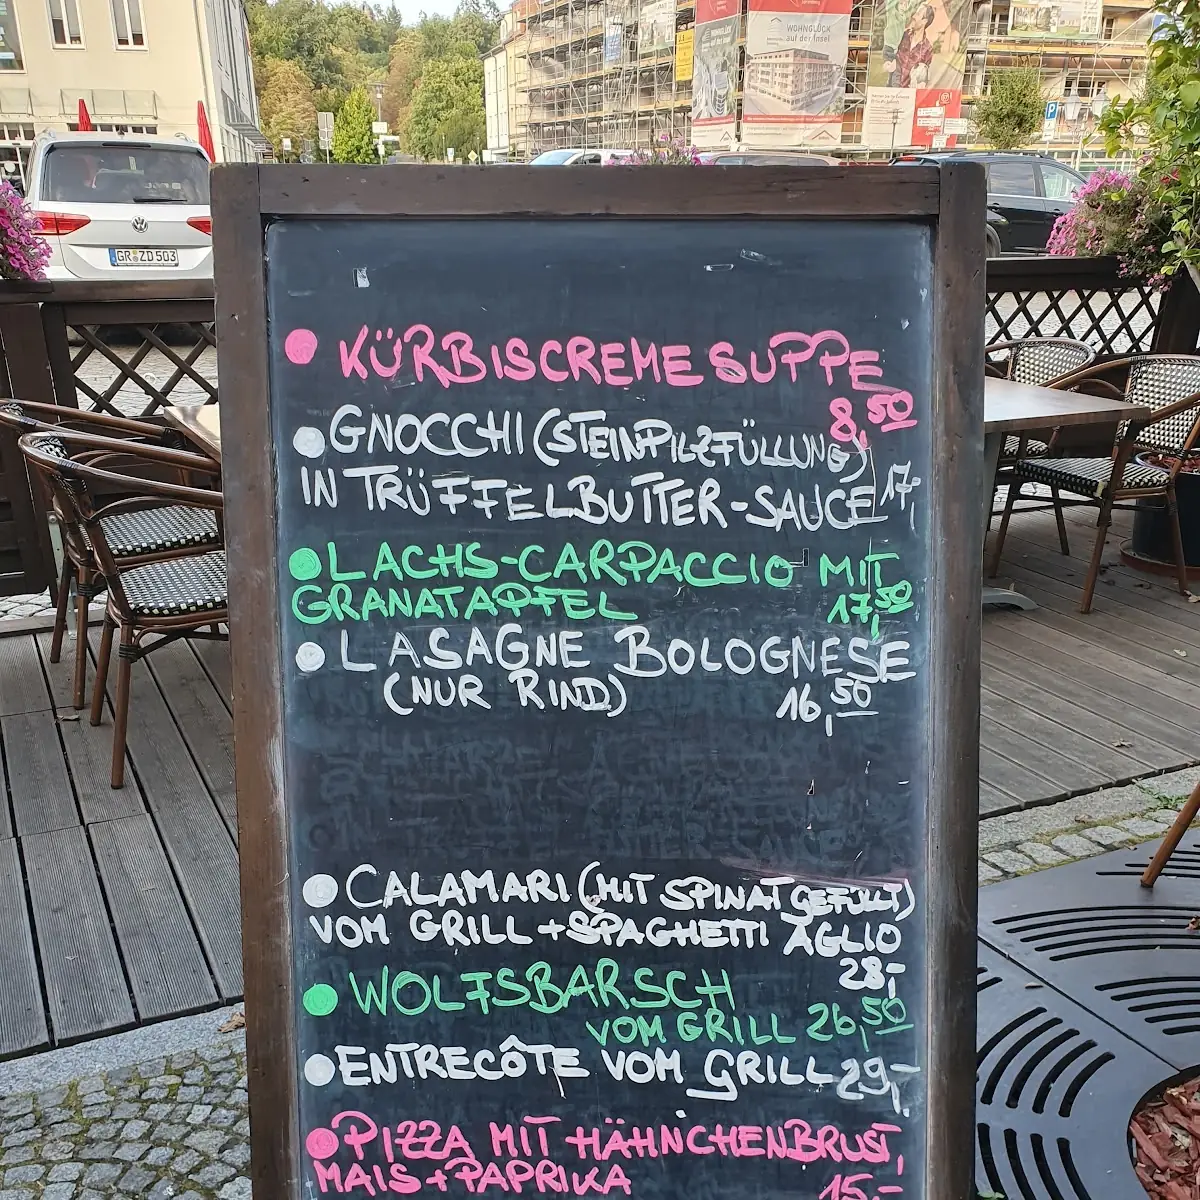 WOHNGLÜCK
auf der Insel
GR ZD 503
P
• KÜRBISCREME SUPPE
8,50
• GNOCCHI (STEINPILZFÜLLUNG)
IN TRÜFFELBUTTER-SAUCE 17,-
• LACHS-CARPACCIO MIT
GRANATAPFEL 17,50
• LASAGNE BOLOGNESE
(NUR RIND) 16,50
• CALAMARI (MIT SPINAT GEFÜLLT)
VOM GRILL + SPAGHETTI AGLIO
28,-
• WOLFSBARSCH
VOM GRILL 26,50
• ENTRECÔTE VOM GRILL 29,-
• PIZZA MIT HÄHNCHENBRUST,
MAIS + PAPRIKA 15,-